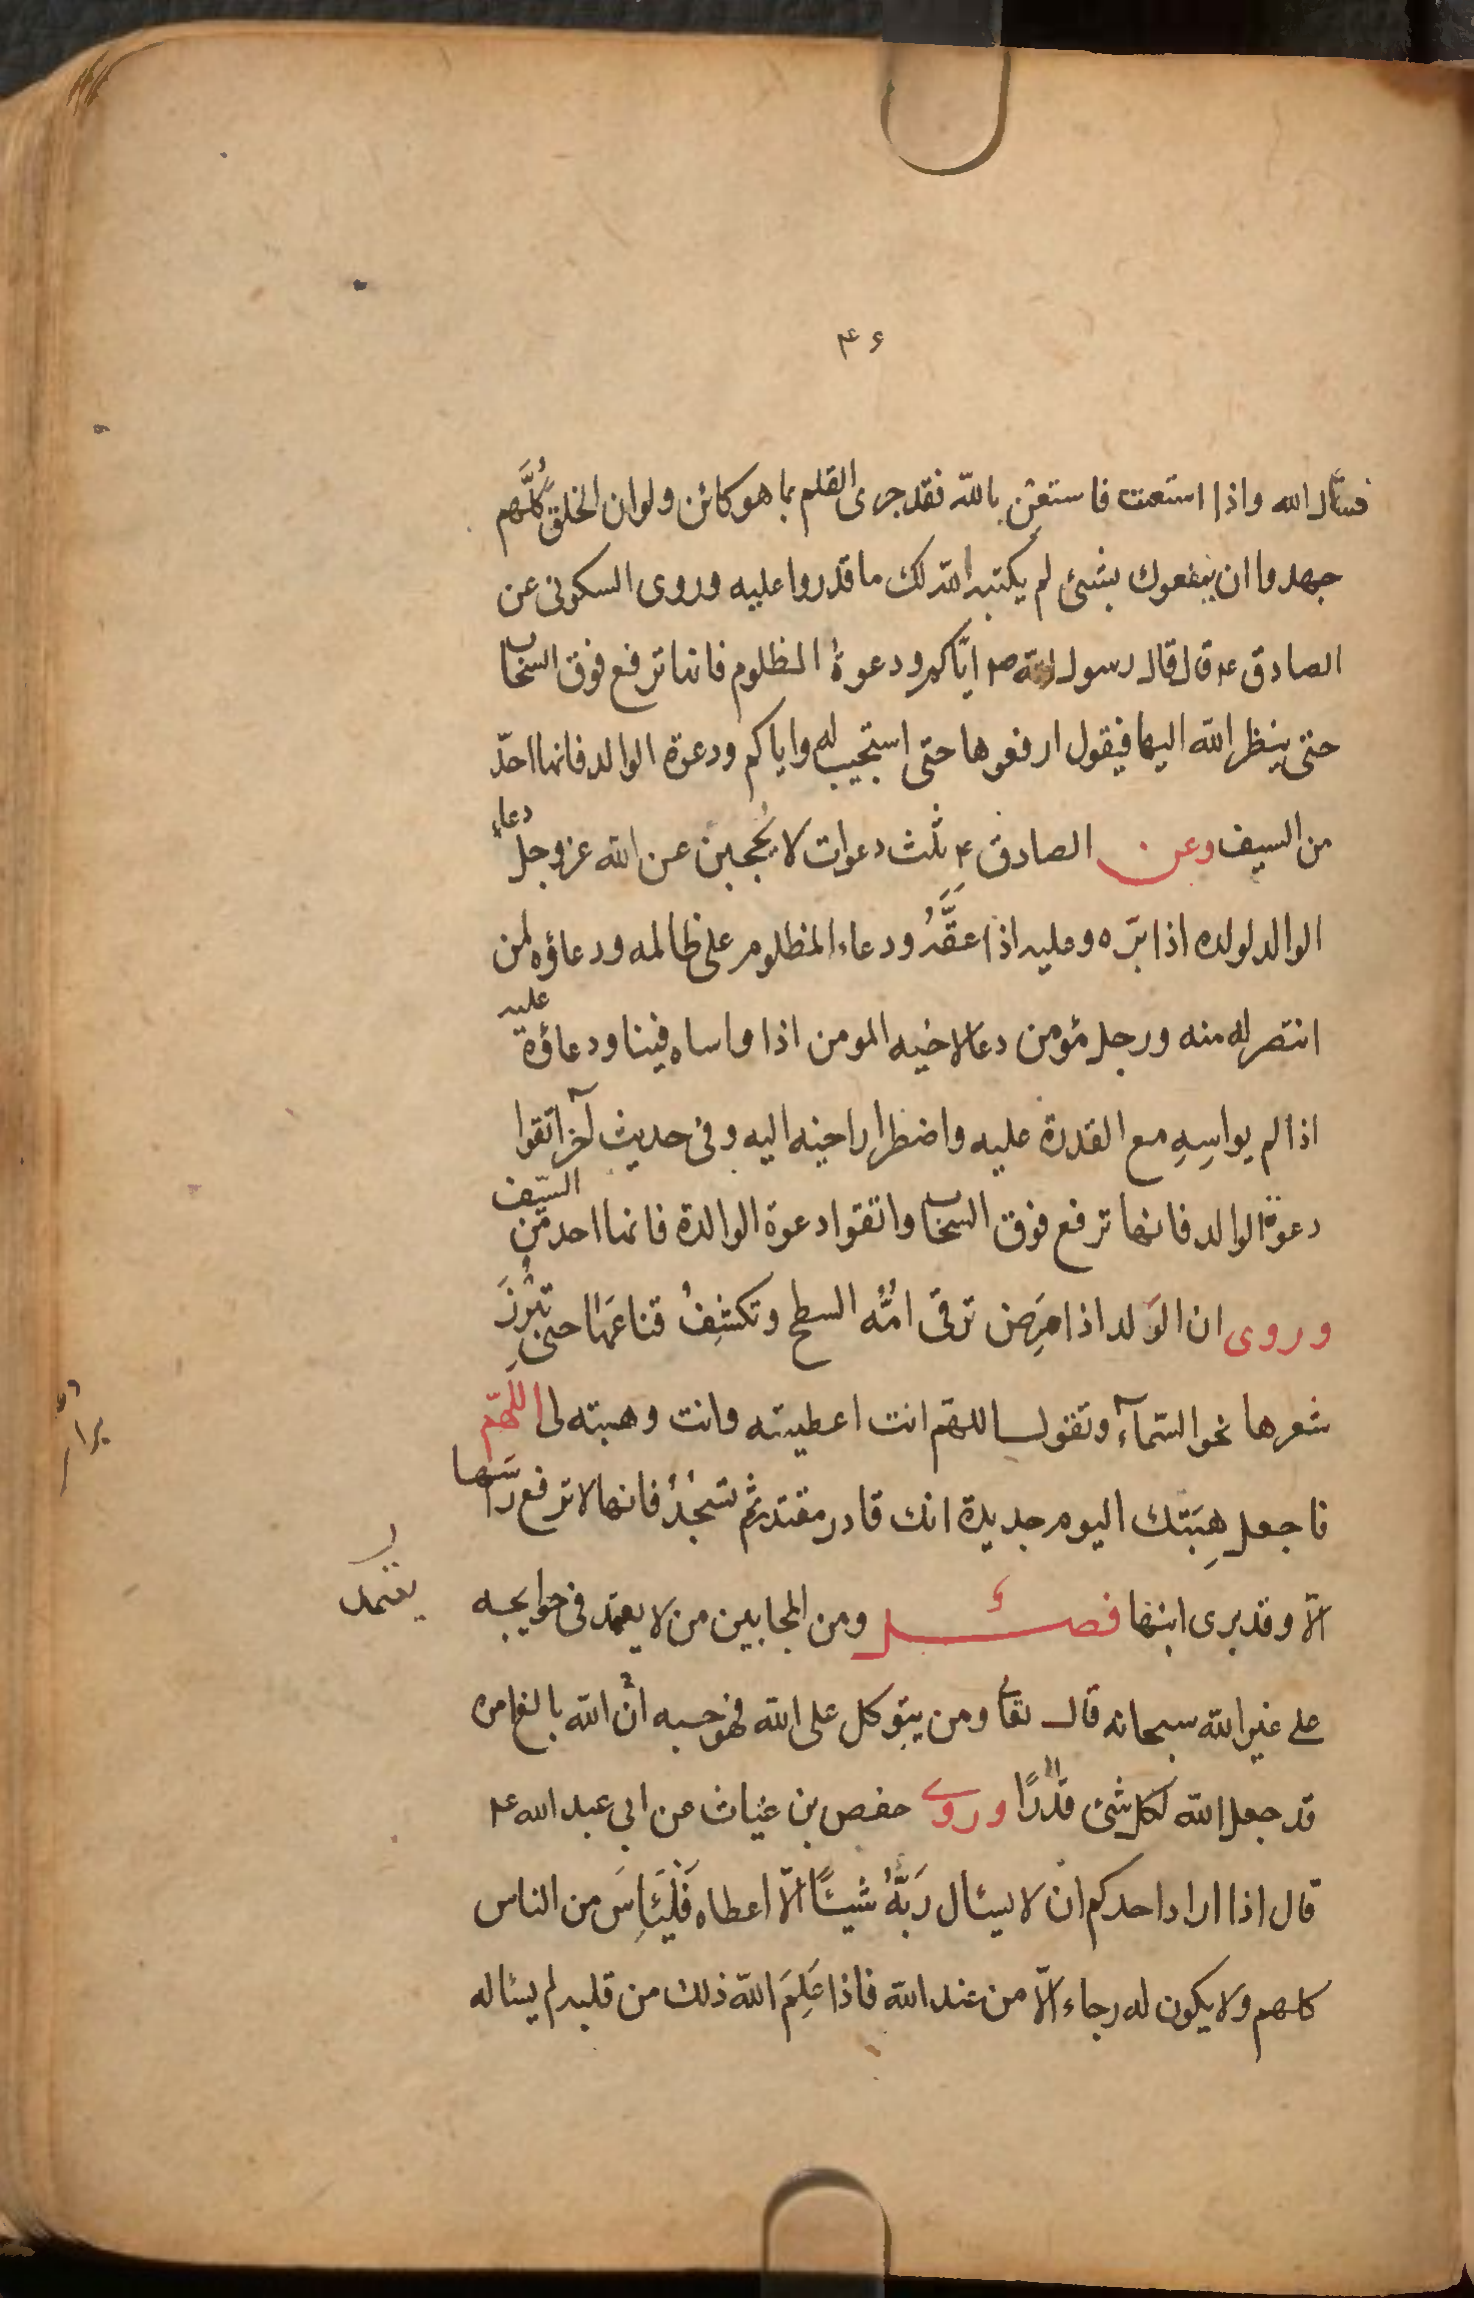 ۴۶
فسئال الله واذا استعنت فاستعن بالله فقد جرى القلم بما هو كائن ولو ان الخلق كُلَّهم
جهدوا ان ينفعوك بشئ لم يكتبه الله لك ما قدروا عليه وروى السكونى عن
الصادق ع قال قال رسول الله ص اياكم ودعوة المظلوم فانها ترفع فوق السحاب
حتى ينظر الله اليها فيقول ارفعوها حتى استجيب له واياكم ودعوة الوالد فانها احدّ
من السيف وعن الصادق ع ثلث دعوات لا يُحجبن عن الله عز وجل دعاء
الوالد لولده اذا برّه وعليه اذا عقَّهُ ودعاء المظلوم على ظالمه ودعاؤه لمن
انتصر له منه ورجل مؤمن دعا لاخيه المومن اذا واساه فينا ودعاؤه عليه
اذا لم يواسِهِ مع القدرة عليه واضطرار اخيه اليه وفى حديث آخر اتقوا
دعوة الوالد فانها ترفع فوق السحاب واتقوا دعوة الوالدة فانها احد من السّيف
وروى ان الوَلد اذا مَرِض ترقى امُّه السطح وتكشِفُ قناعَها حتى تبْرُزَ
شعرها نحو السّمآء وتقول اللهمّ انت اعطيته وانت وهبته لى اللّهمّ
فاجعل هِبَتَك اليوم جديدة انك قادر مقتدر ثم تسْجُدُ فانها لا ترفع رَاسَها
الّا وقد برى ابنها فصل ومن المجابين من لا يعتمد فى حوايجه
يعتمد
على غير الله سبحانه قال تعا ومن يتوكل على الله فهو حسبه انّ الله بالغ امره
قد جعل الله لكل شئ قدْرًا وروى حفص بن غياث عن ابى عبد الله ع
قال اذا اراد احدكم ان لا يسئال رَبَّهُ شيئًا الّا اعطاه فَلْيَئاسَ من الناس
كلهم ولا يكون له رجاء الّا من عند الله فاذا عَلِمَ الله ذلك من قلبه لم يسئاله